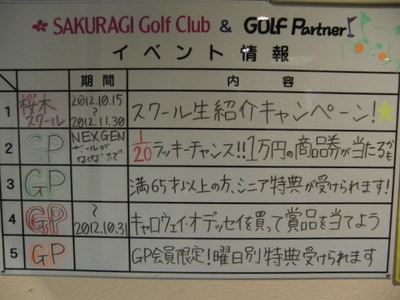 SAKURAGI Golf Club & GOLF Partner
イベント情報
期間 内容
1 桜木スクール 2012.10.15 ~ 2012.11.30 スクール生紹介キャンペーン!
2 GP NEXGENボールがなくなるまで 1/20ラッキーチャンス!!1万円の商品券が当たるかも
3 GP 満65才以上の方、シニア特典が受けられます!
4 GP ~ 2012.10.31 キャロウェイ・オデッセイを買って賞品を当てよう
5 GP GP会員限定!曜日別特典受けられます